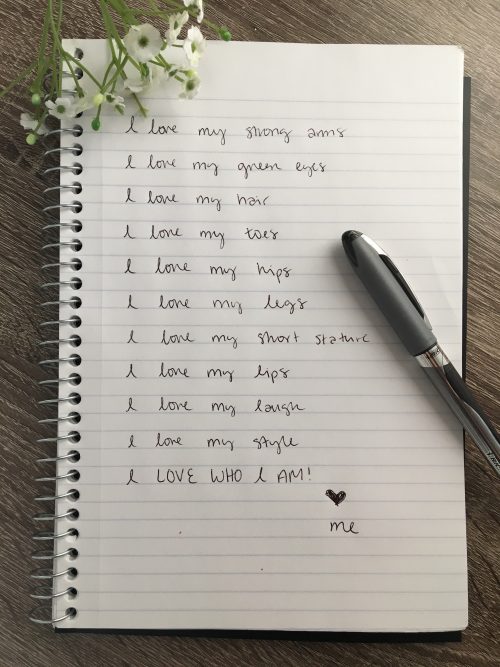 I love my strong arms
I love my green eyes
I love my hair
I love my toes
I love my hips
I love my legs
I love my short stature
I love my lips
I love my laugh
I love my style
I LOVE WHO I AM!
♥
me